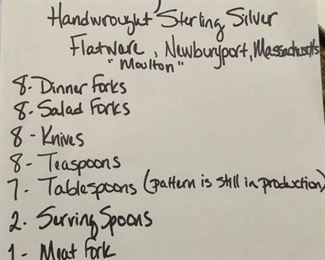 Handwrought Sterling Silver
Flatware, Newburyport, Massachusetts
"Moulton"
8- Dinner Forks
8- Salad Forks
8- Knives
8- Teaspoons
7- Tablespoons (pattern is still in production)
2- Serving Spoons
1- Meat Fork